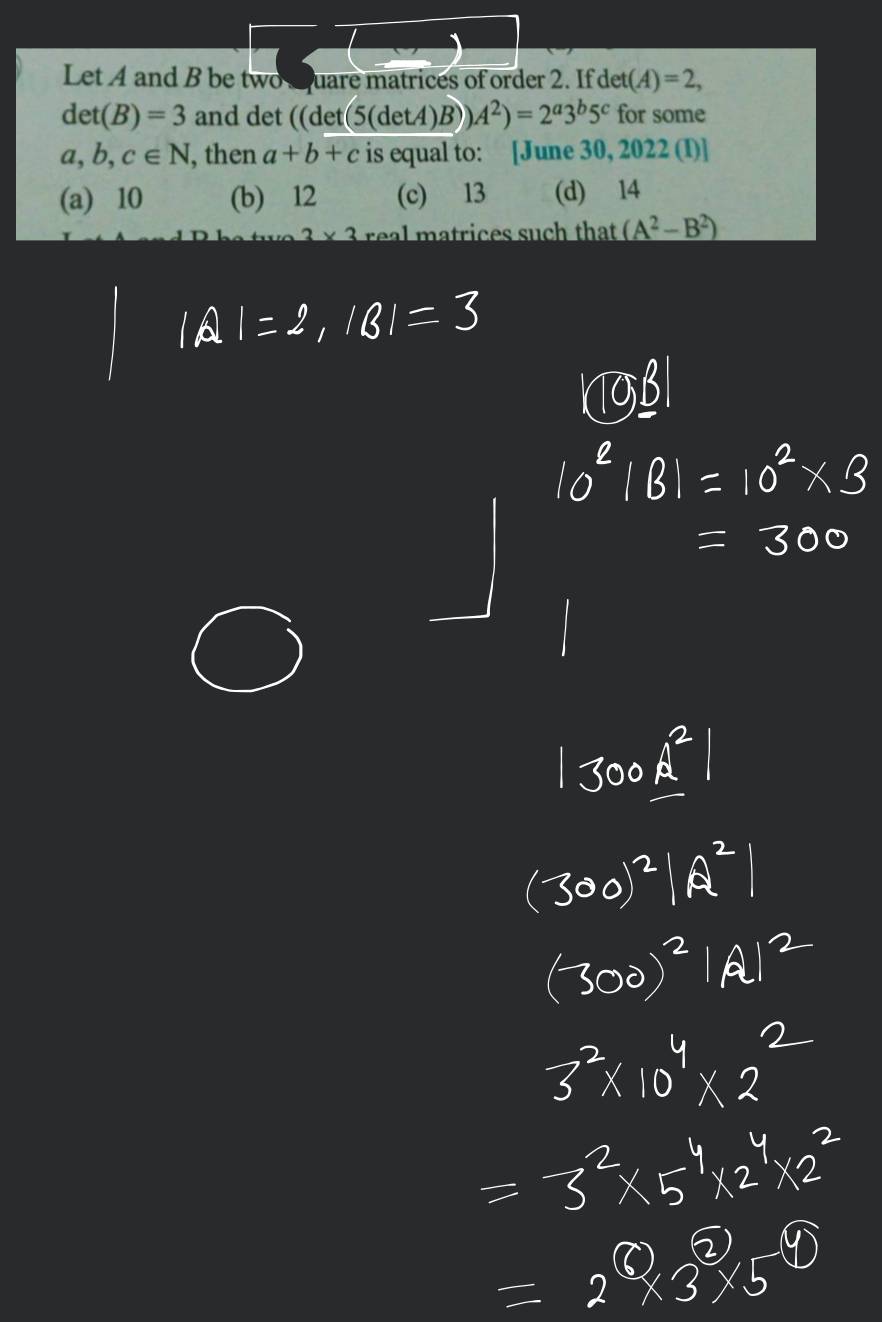 Let A and B be two square matrices of order 2. If det(A)=2,
det(B) = 3 and det ((det(5(detA)B))A²) = 2ᵃ3ᵇ5ᶜ for some
a, b, c ∈ N, then a + b + c is equal to: [June 30, 2022 (I)]
(a) 10 (b) 12 (c) 13 (d) 14
Let A and B be two 3 × 3 real matrices such that (A² – B²)
|A| = 2, |B| = 3
|10B|
10² |B| = 10² × 3
= 300
|300A²|
(300)² |A²|
(300)² |A|²
3² × 10⁴ × 2²
= 3² × 5⁴ × 2⁴ × 2²
= 2⁶ × 3² × 5⁴